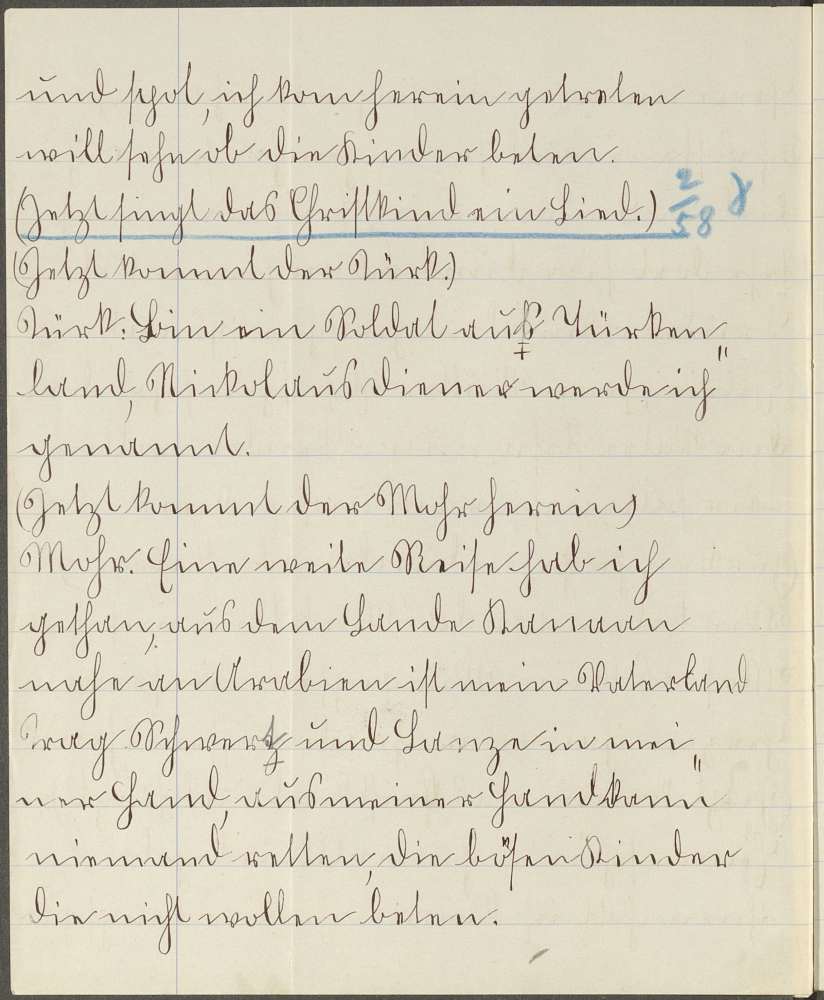 und spot, ich kom herein getreten
will sehn ob die Kinder beten.
(Jetzt singt das Christkind ein Lied.) 2/58 8
(Jetzt kommt der Türk.)
Türk: Bin ein Soldat auß Türken„
land, Nickolaus Diener werde ich
genannt.
(Jetzt kommt der Mohr herein)
Mohr. Eine weite Reise hab ich
gethan, aus dem Lande Kanaan
nahe an Arabien ist mein Vaterland
Trag Schwertz und Lanze in mei„
ner Hand, aus meiner Hand kann
niemand retten, die bösen Kinder
die nicht wollen beten.